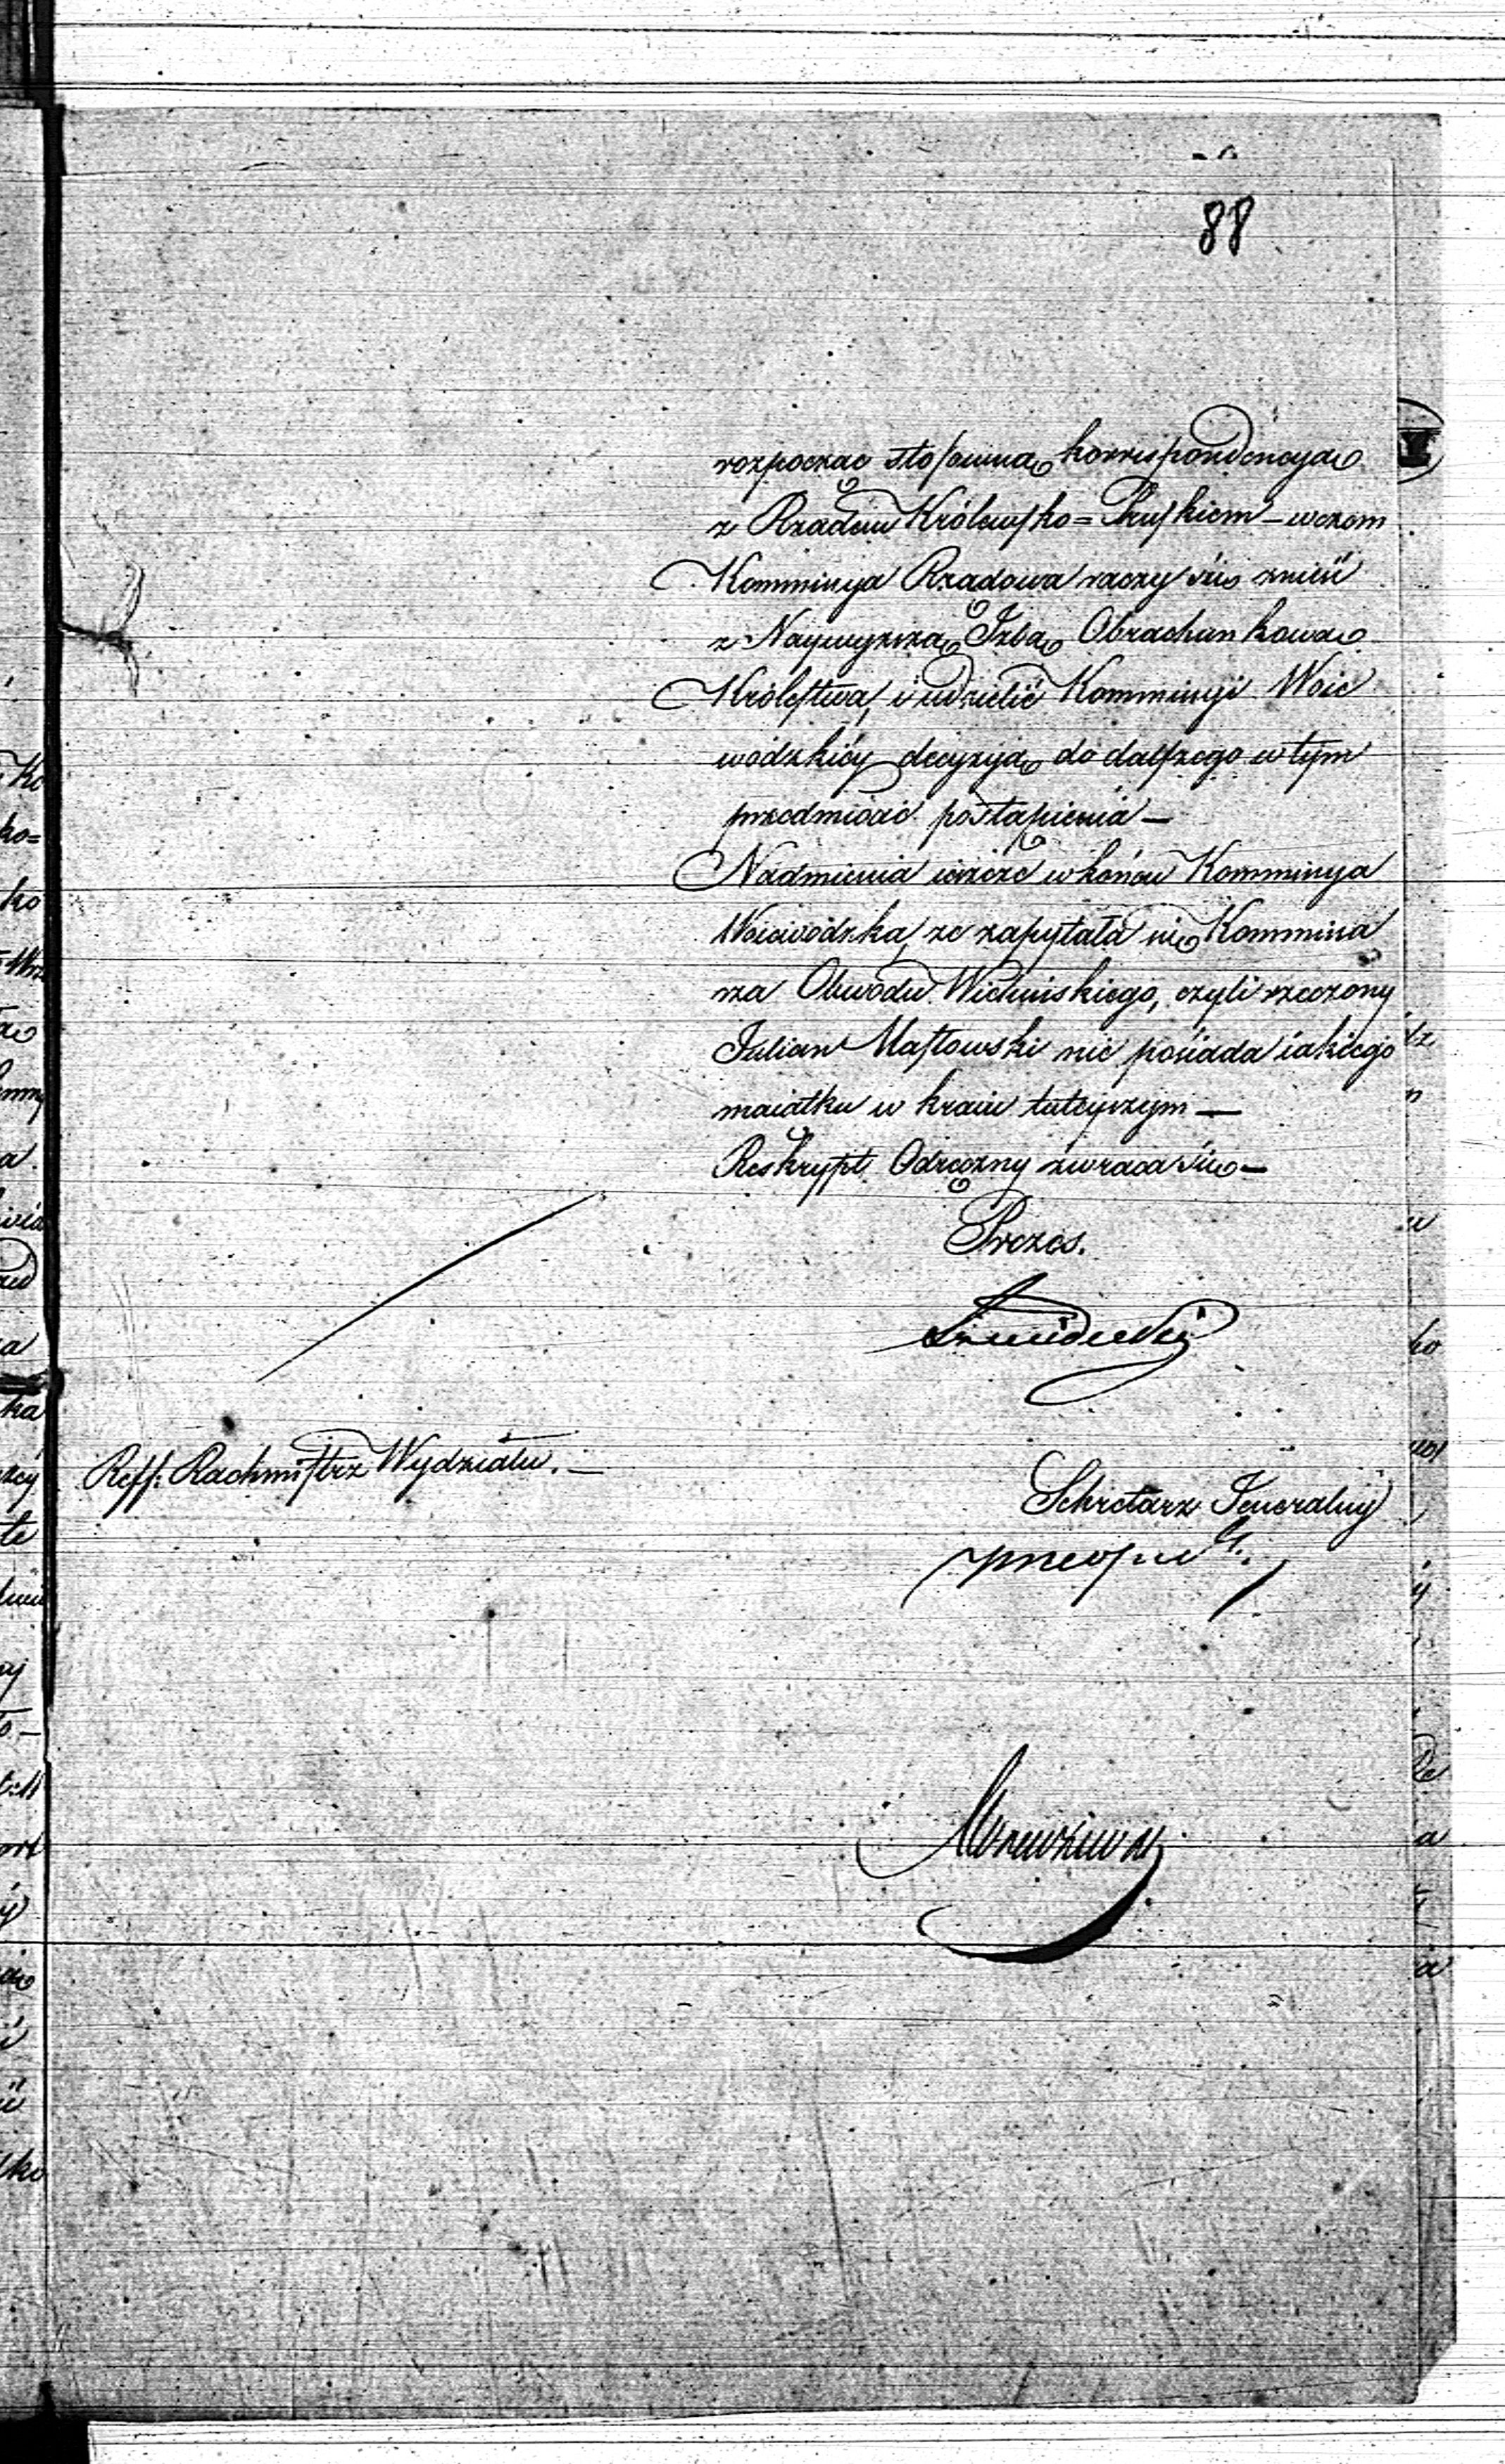 88
rozpocząć stosowną korrespondencyą
z Rządem Królewsko=Pruskiem – wczem
Kommissya Rządowa raczy się znieść
z Naywyższą Izbą Obrachunkową
Królestwa, i udzielić Kommissyi Woie
wódzkiéy decyzyą do dalszego w tym
przedmiocie postąpienia –
Nadmienia ieszcze w końcu Kommissya
Woiewódzka, że zapytała się Kommissa
rza Obwodu Wieluńskiego, czyli rzeczony
Julian Masłowski nie posiada iakiego
maiątku w kraiu tuteyszym –
Reskrypt Odręczny zwraca się –
Prezes.
Reff: Rachmistrz Wydziału. –
Sekretarz Jeneralny